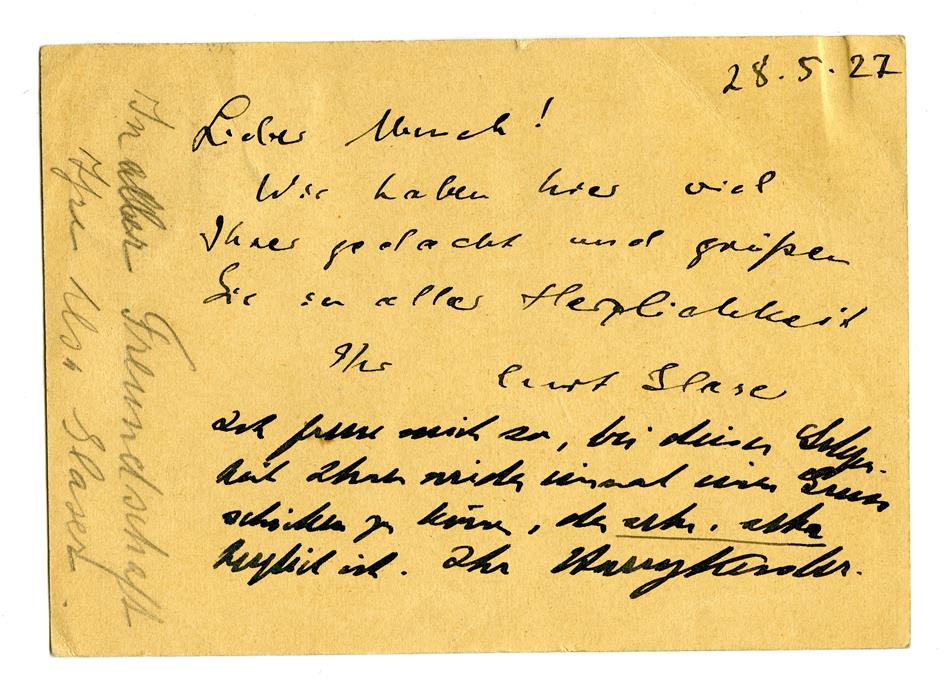 28.5.27
Lieber Munch!
Wir haben hier viel
Ihrer gedacht und grüßen
Sie in aller Herzlichkeit
Ihr Curt Glaser
Ich freue mich so, bei dieser Gelegen-
heit Ihnen wieder einmal einen Gruss
schicken zu können, der sehr, sehr
herzlich ist. Ihr Harry Kessler.
In alter Freundschaft
Ihre Elsa Glaser